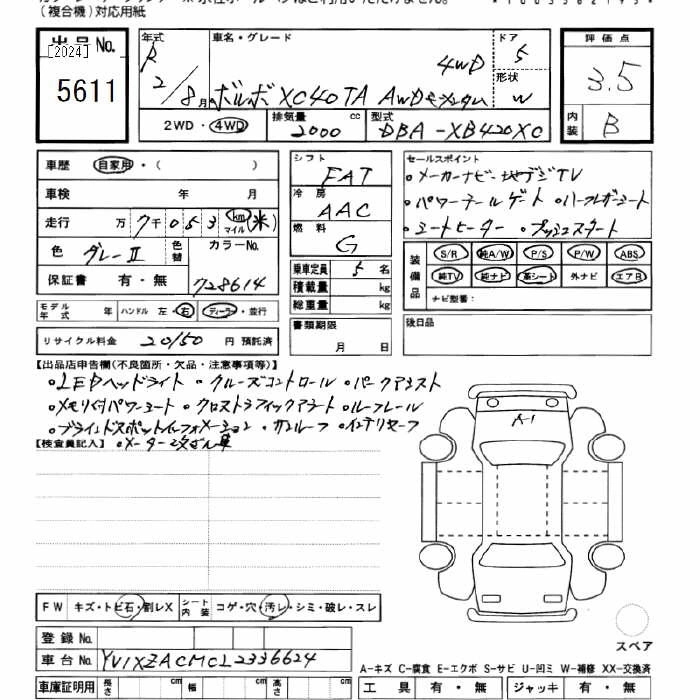 （複合機）対応用紙
出品 No.
[2024]
5611
年式
R 2/8月
車名・グレード
4WD
ボルボ XC40 TA AWD
ドア 5
形状 W
評価点
3.5
内装 B
2WD・4WD
排気量 2000 cc
型式 DBA-XB420XC
車歴 自家用・（ ）
車検 年 月
走行 万 7千 053 km マイル (米)
色 グレーII 色替
カラーNo. 728614
保証書 有・無
モデル年式 年 ハンドル 左・右 ディーラー・並行
リサイクル料金 20150 円 預託済
シフト FAT
冷房 AAC
燃料 G
乗車定員 5 名
積載量 kg
総重量 kg
書類期限
月 日
セールスポイント
○メーカーナビ ○地デジTV
○パワーテールゲート ○ハーフレザーシート
○シートヒーター ○プッシュスタート
装備品 S/R 純A/W P/S P/W ABS
純TV 純ナビ 革シート 外ナビ エアB
ナビ型番：
後日品
【出品店申告欄(不良箇所・欠品・注意事項等)】
○LEDヘッドライト ○クルーズコントロール ○パークアシスト
○メモリ付パワーシート ○クロストラフィックアラート ○ルーフレール
○ブラインドスポットインフォメーション ○サンルーフ ○インテリセーフ
【検査員記入】 ○メーター改ざん車
A-1
FW キズ・トビ石・割レX シート内装 コゲ・穴・汚レ・シミ・破レ・スレ
登録No.
車台No. YV1XZACMCL2336624
車庫証明用 長さ cm 幅 cm 高さ cm
スペア
A-キズ C-腐食 E-エクボ S-サビ U-凹ミ W-補修 XX-交換済
工具 有・無 ジャッキ 有・無